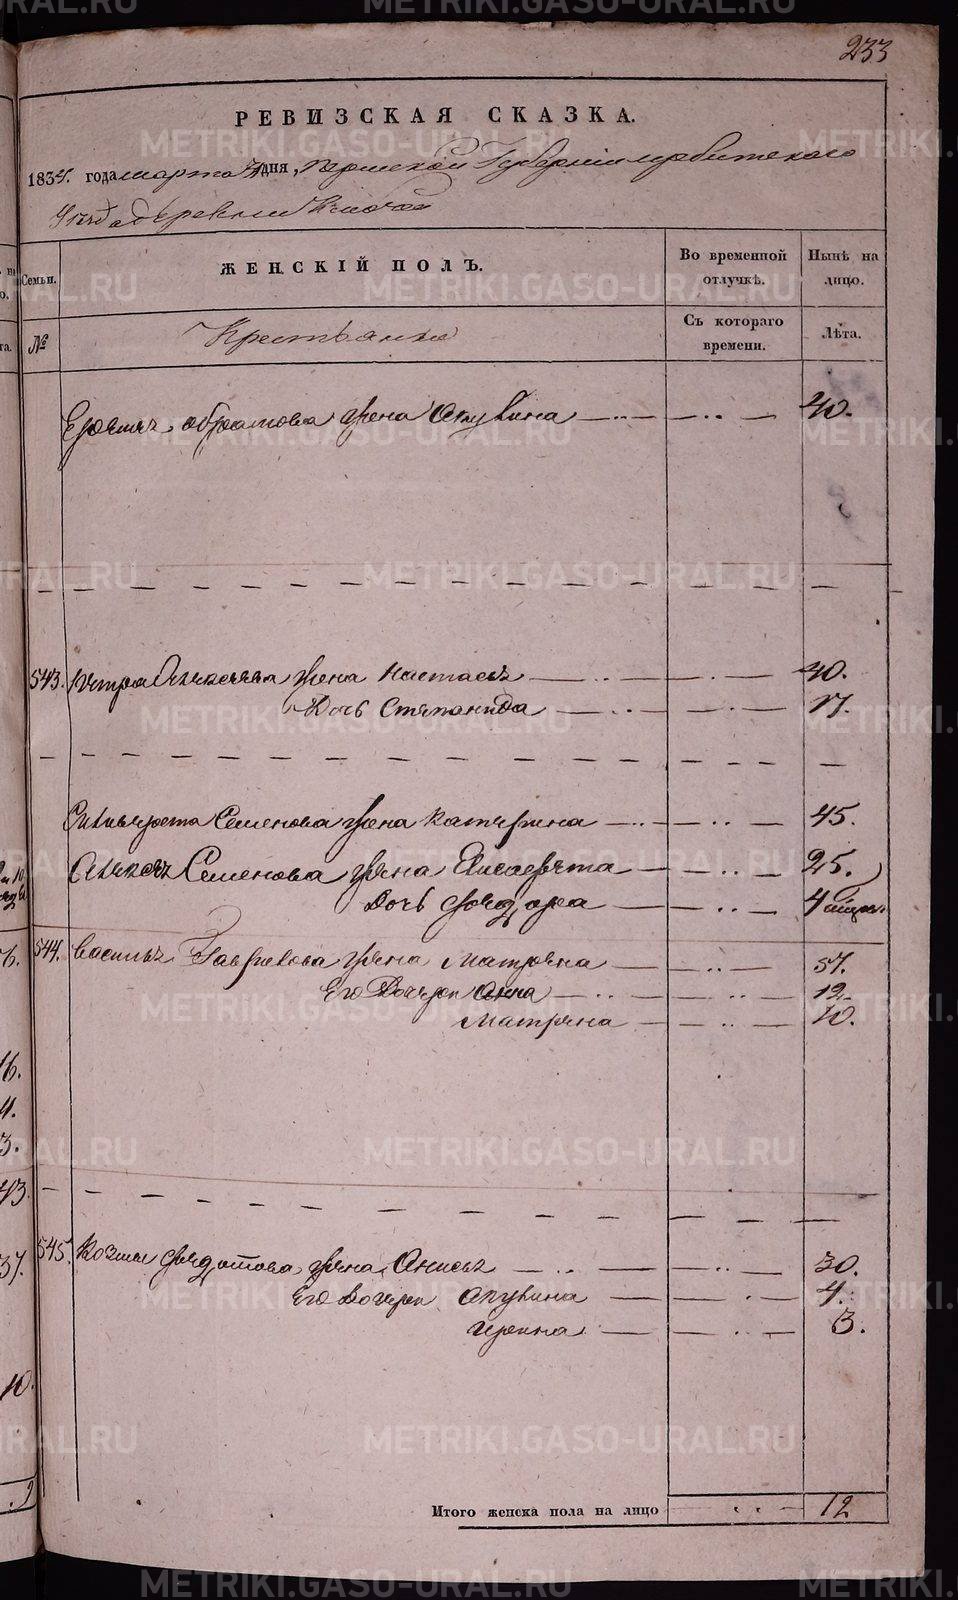 233
РЕВИЗСКАЯ СКАЗКА.
1834. года марта дня, Пермской Губернiи Ирбитскаго
Уезда деревни Ключей
Семьи.
ЖЕНСКIЙ ПОЛЪ.
Во временной отлучкѣ.
Нынѣ на лицо.
№
Крестьянки
Съ котораго времени.
Лѣта.
жена Акулина 40.
543. Петра Алексеева жена Настасья 40.
Дочь Степанида 17.
Семенова жена Катерина 45.
Алексея Семенова жена Елисавета 25.
Дочь Федора 4
544. Василья Гаврилова жена Матрена 57.
Его Дочери Анна 12.
Матрена 10.
545. Козмы Федотова жена Анисья 30.
Его Дочери Акулина 4.
Ирина 3.
Итого женска пола на лицо 12
METRIKI.GASO-URAL.RU